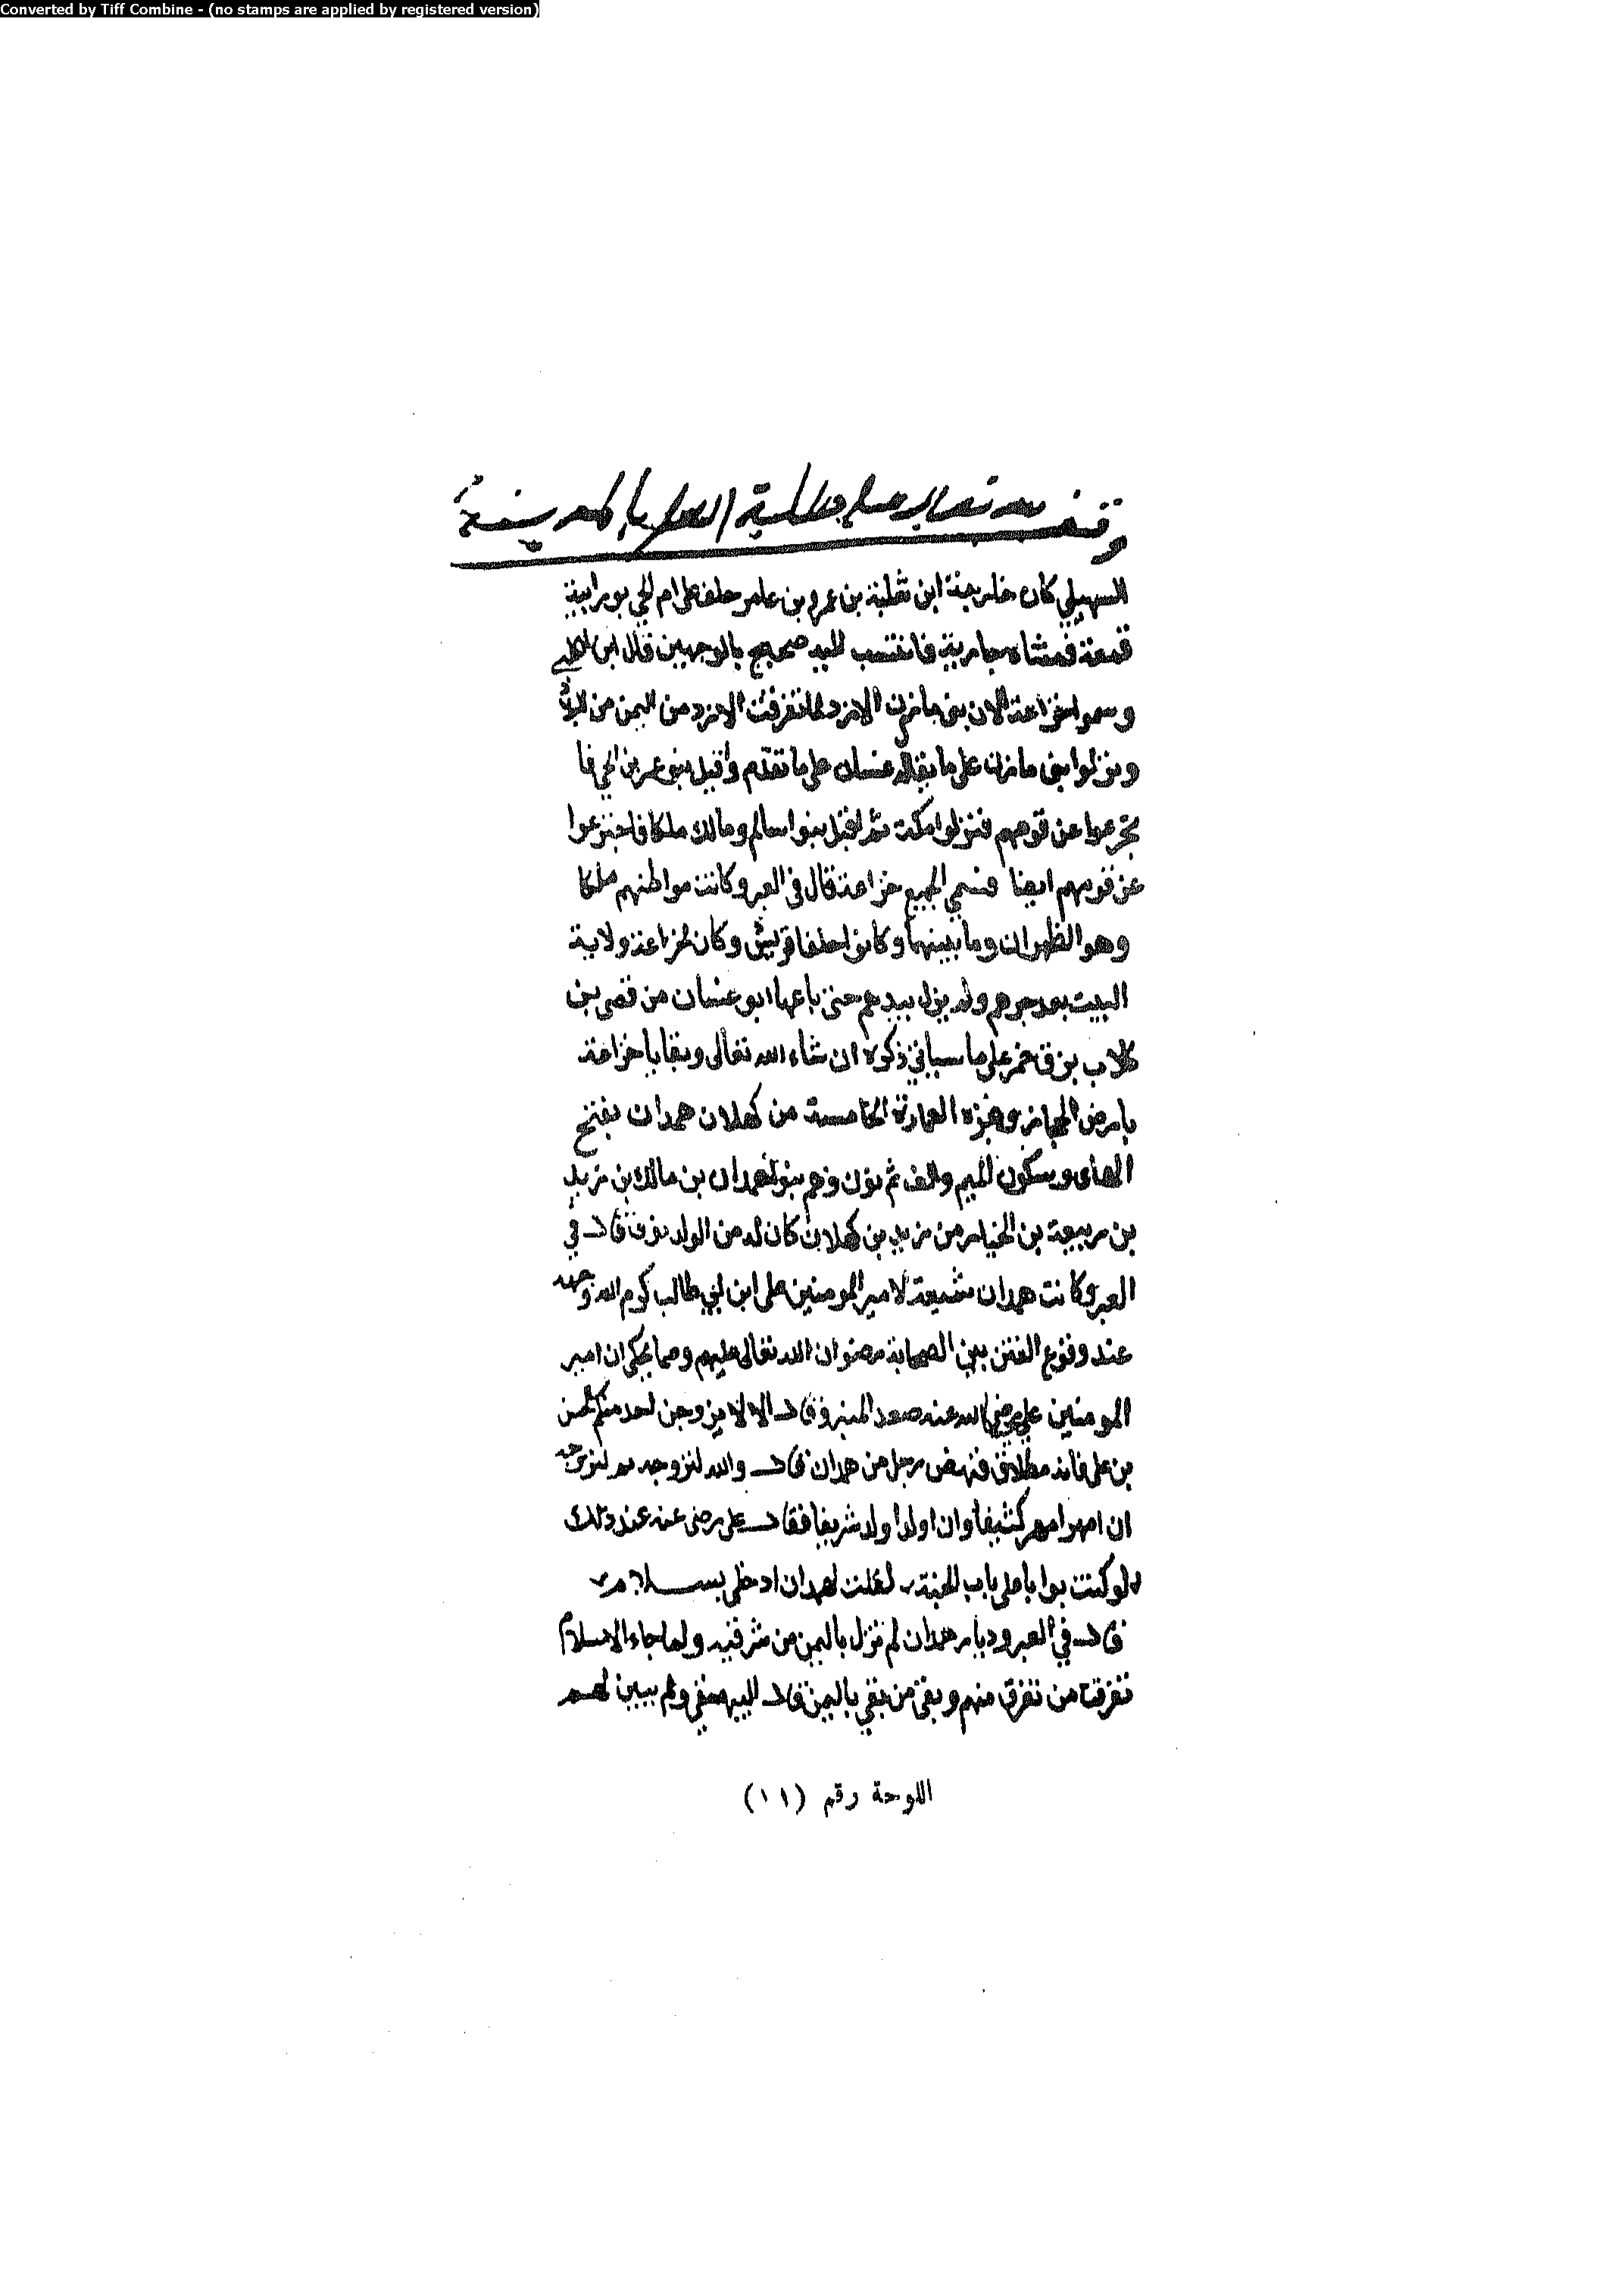 Converted by Tiff Combine - (no stamps are applied by registered version)
وقف لله تعالى على طلبة العلم
السهيلي كان حارجة ابن ثعلبة بن عمرو بن عامر حلف على ام لحي بو برابية
قمعة فمنشاه حاربة فانتسب لليه صحيح بالوجهين قال ابن الكلبي
وسموا خزاعة لان بني مازن الازد لما تفرقت الازد من اليمن من البلاد
ونزلوا بني مازن على ما يقاله غسان على ما تقدم واقبل بنو عمر بن لحي فا
نخزعوا عن قومهم فنزلوا مكة ثم اقبل بنوا سالم ومالك ملكا فاختزعوا
عن قومهم ايضا فسمي الجميع خزاعة قال في العبر وكانت مواطنهم ملكا
وهو الظهران وما بينهما وكانوا حلفا قريش وكان لخزاعة ولاية
البيت بعد جرهم ولم يزل بيدهم حتى باعها ابو غسان من قصي بن
كلاب بن على ما سياتي ذكره ان شاء الله تعالى وبقايا خزاعة
بارض الحجاز وهذه العمارة الخامسة من كهلان همدان بفتح
الهاى وسكون الميم والف ثم نون وهم بنوا همدان بن مالك بن زيد
بن ربيعة بن الخيار من زيد بن كهلان كان له من الولد نوف قال في
العبر وكانت همدان شيعة لامير المومنين على ابن ابي طالب كرم الله وجهه
عند وقوع الفتن بين الصحابة رضوان الله تعالى عليهم ومما يحكى ان امير
المومنين علي رضي الله عنه صعد المنبر وقال الا لا يزوجن احد منكم لحسن
بن على فانه مطلاق فنهض رجل من همدان قال والله لنزوجه ثم لنزوجه
ان امهر امهر كثيفا وان اولد اولد شريفا فقال على رضى عنه عند ذلك
لو كنت بوابا على باب الجنة لقلت لهمدان ادخلي بسلام
قال في العبر وديار همدان لم تزل باليمن من شرقيه ولما جاء الاسلام
تفرقت من تفرق منهم وبقي من بقي باليمن قال البيهقي ولم يبين لهم
اللوحة رقم (١١)